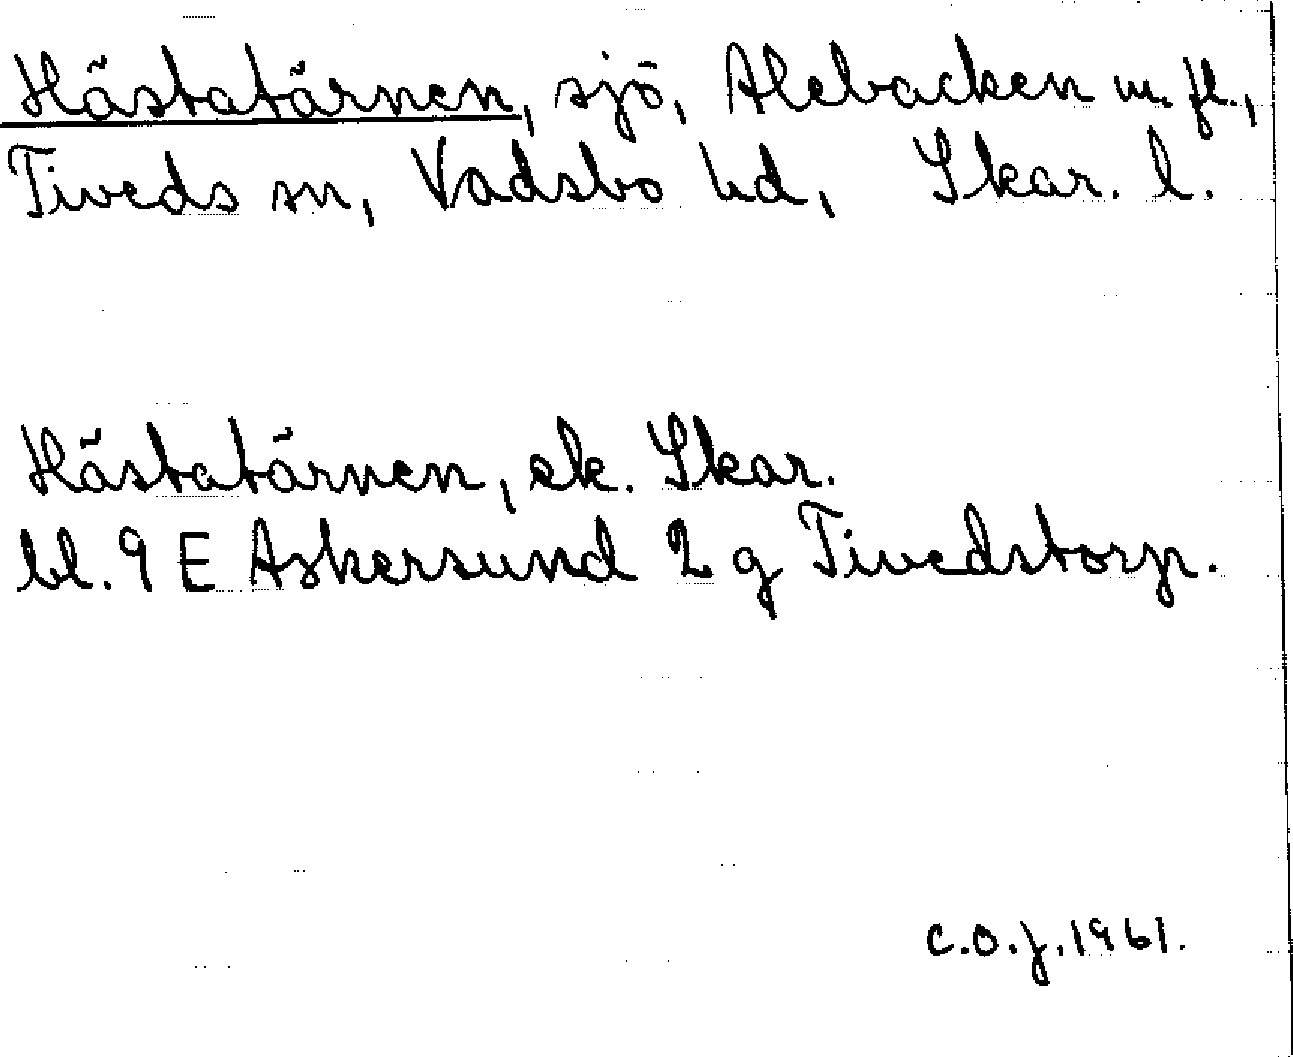 Hästatärnen, sjö, Alebacken m. fl.,
Tiveds sn, Vadsbo hd, Skar. l.
Hästatärnen, ek. Skar.
bl. 9 E Askersund 2 g Tivedstorp.
C.O.J. 1961.